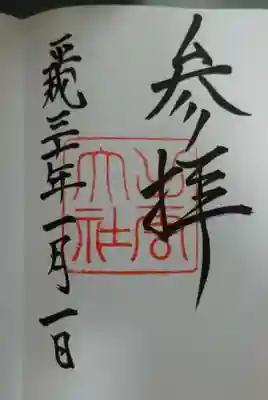 参拝
平成三十一年一月一日
大社